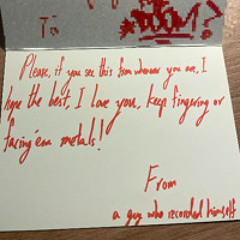 To
Please, if you see this from whenever you are, I
hope the best, I love you, keep fingering or
facing'em metals!
From
a guy who recorded himself